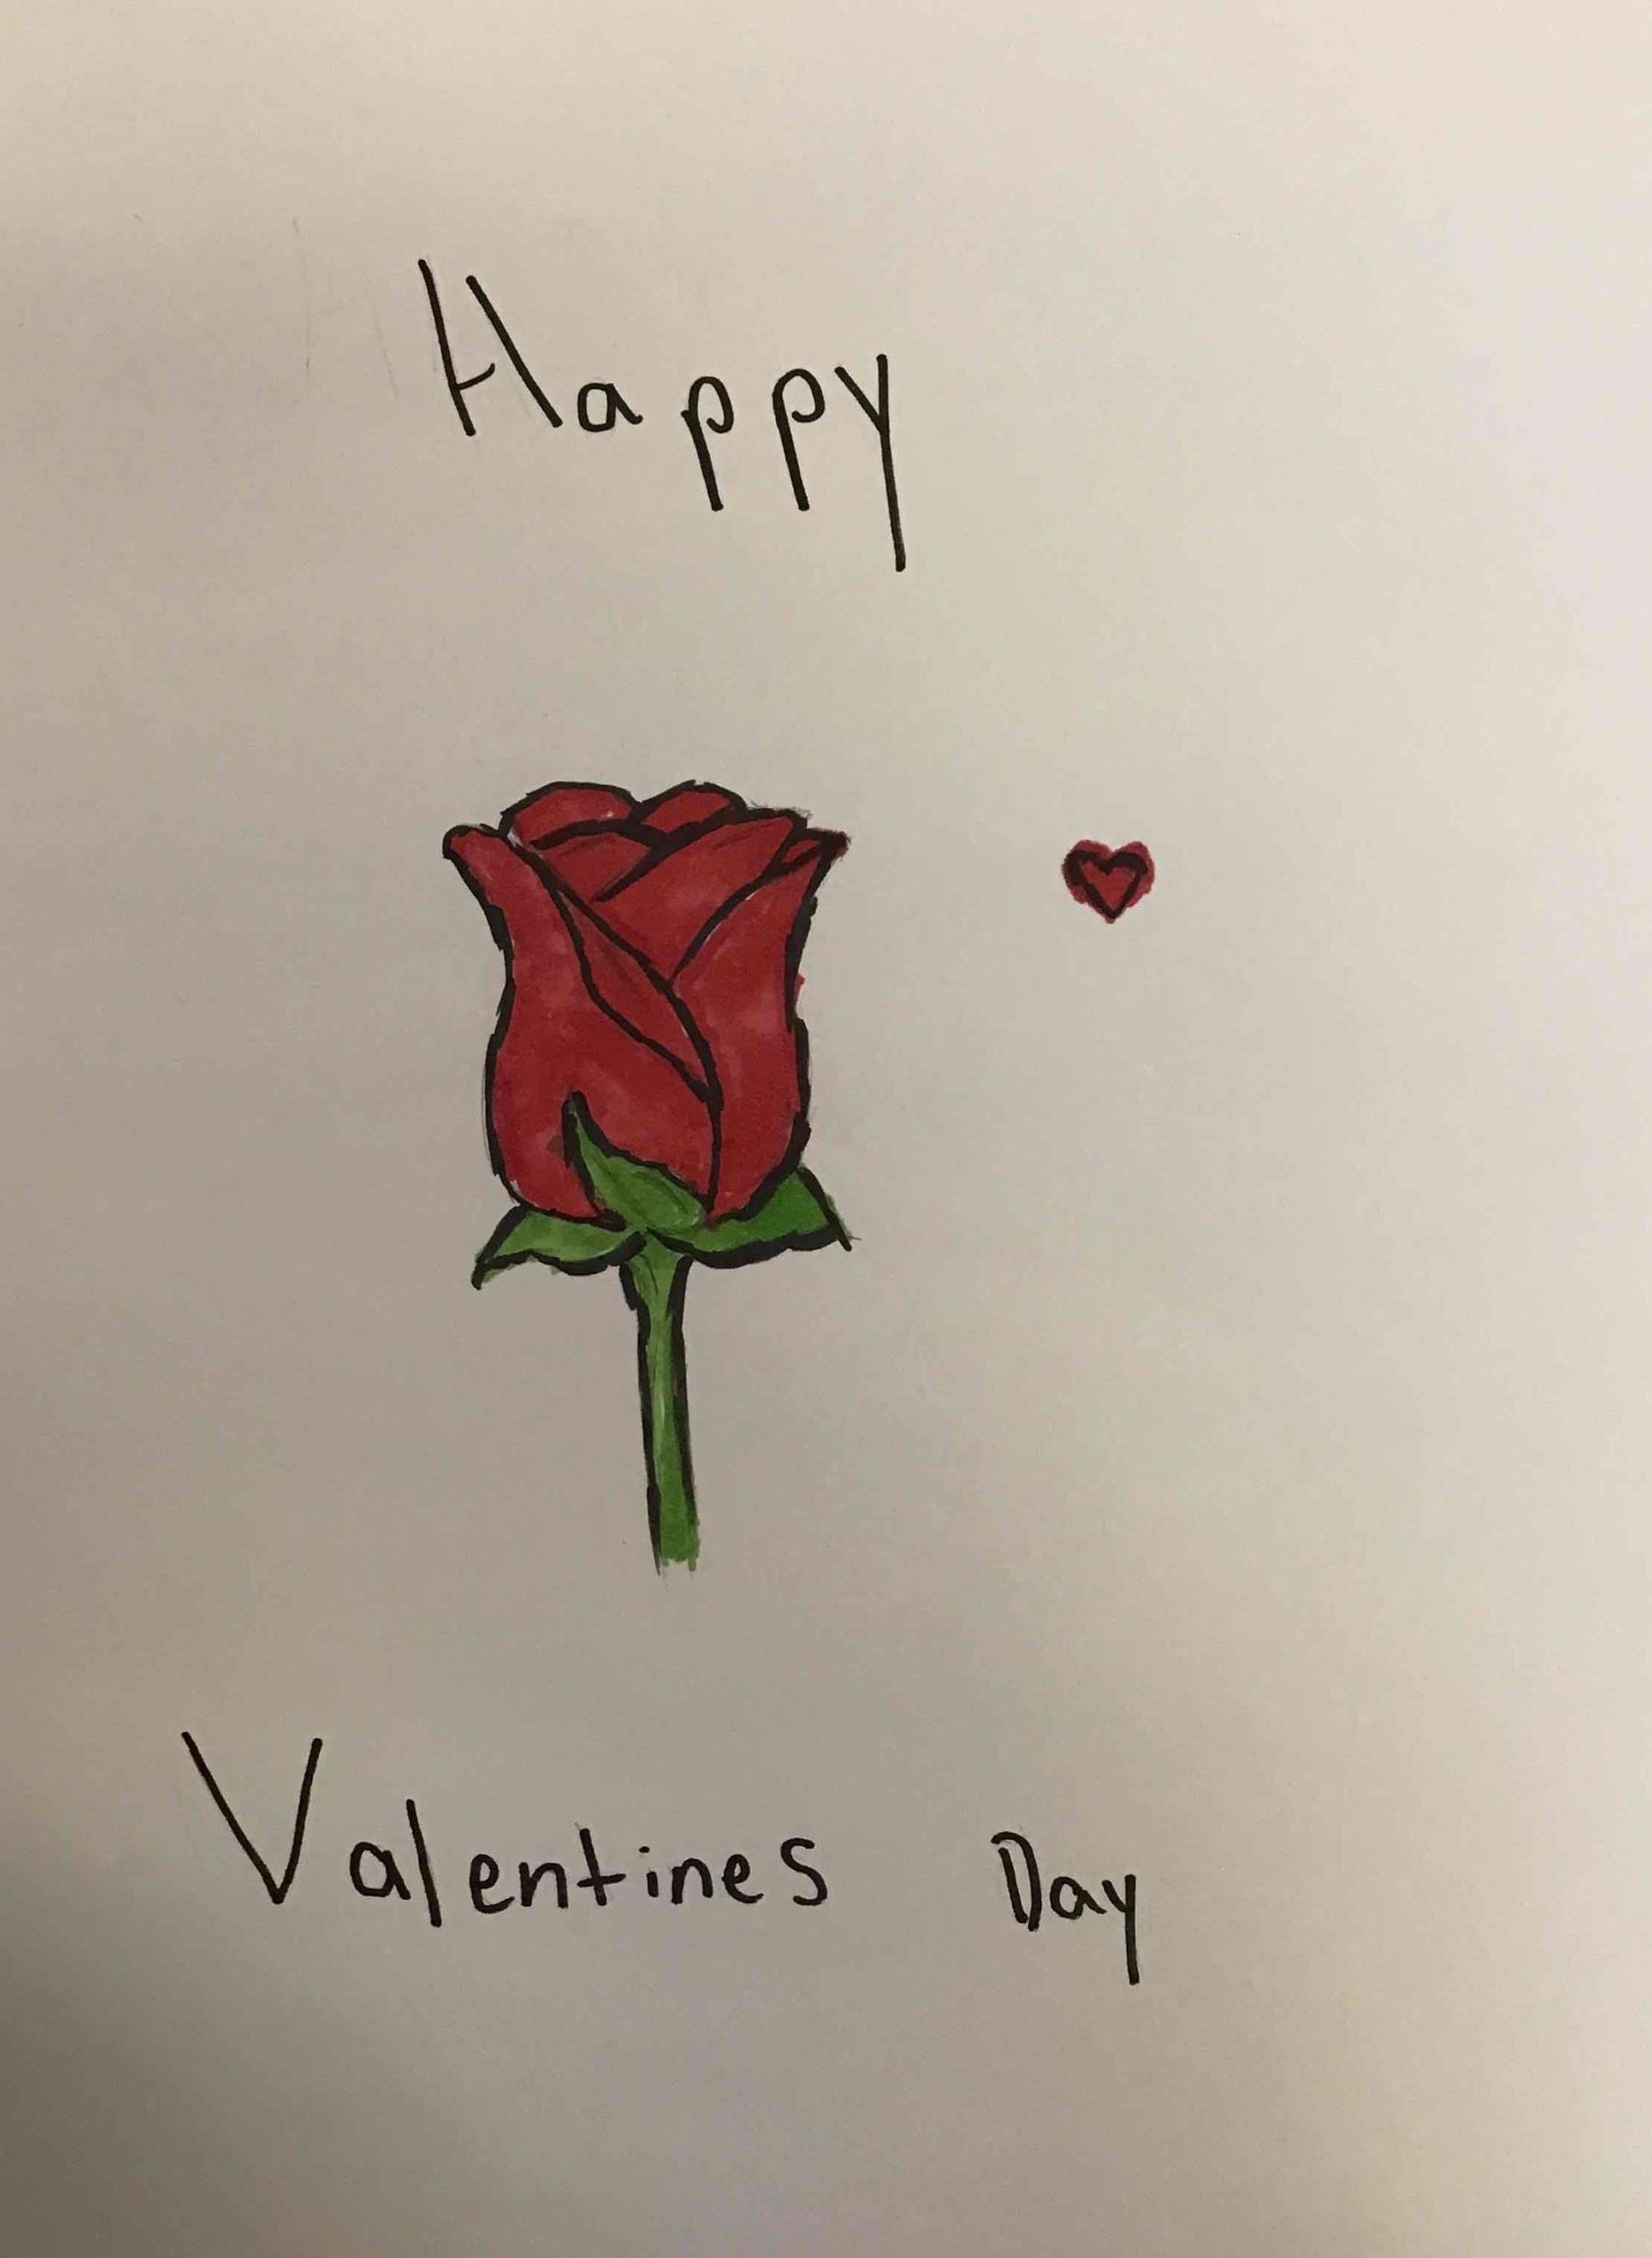 Happy
Valentines Day